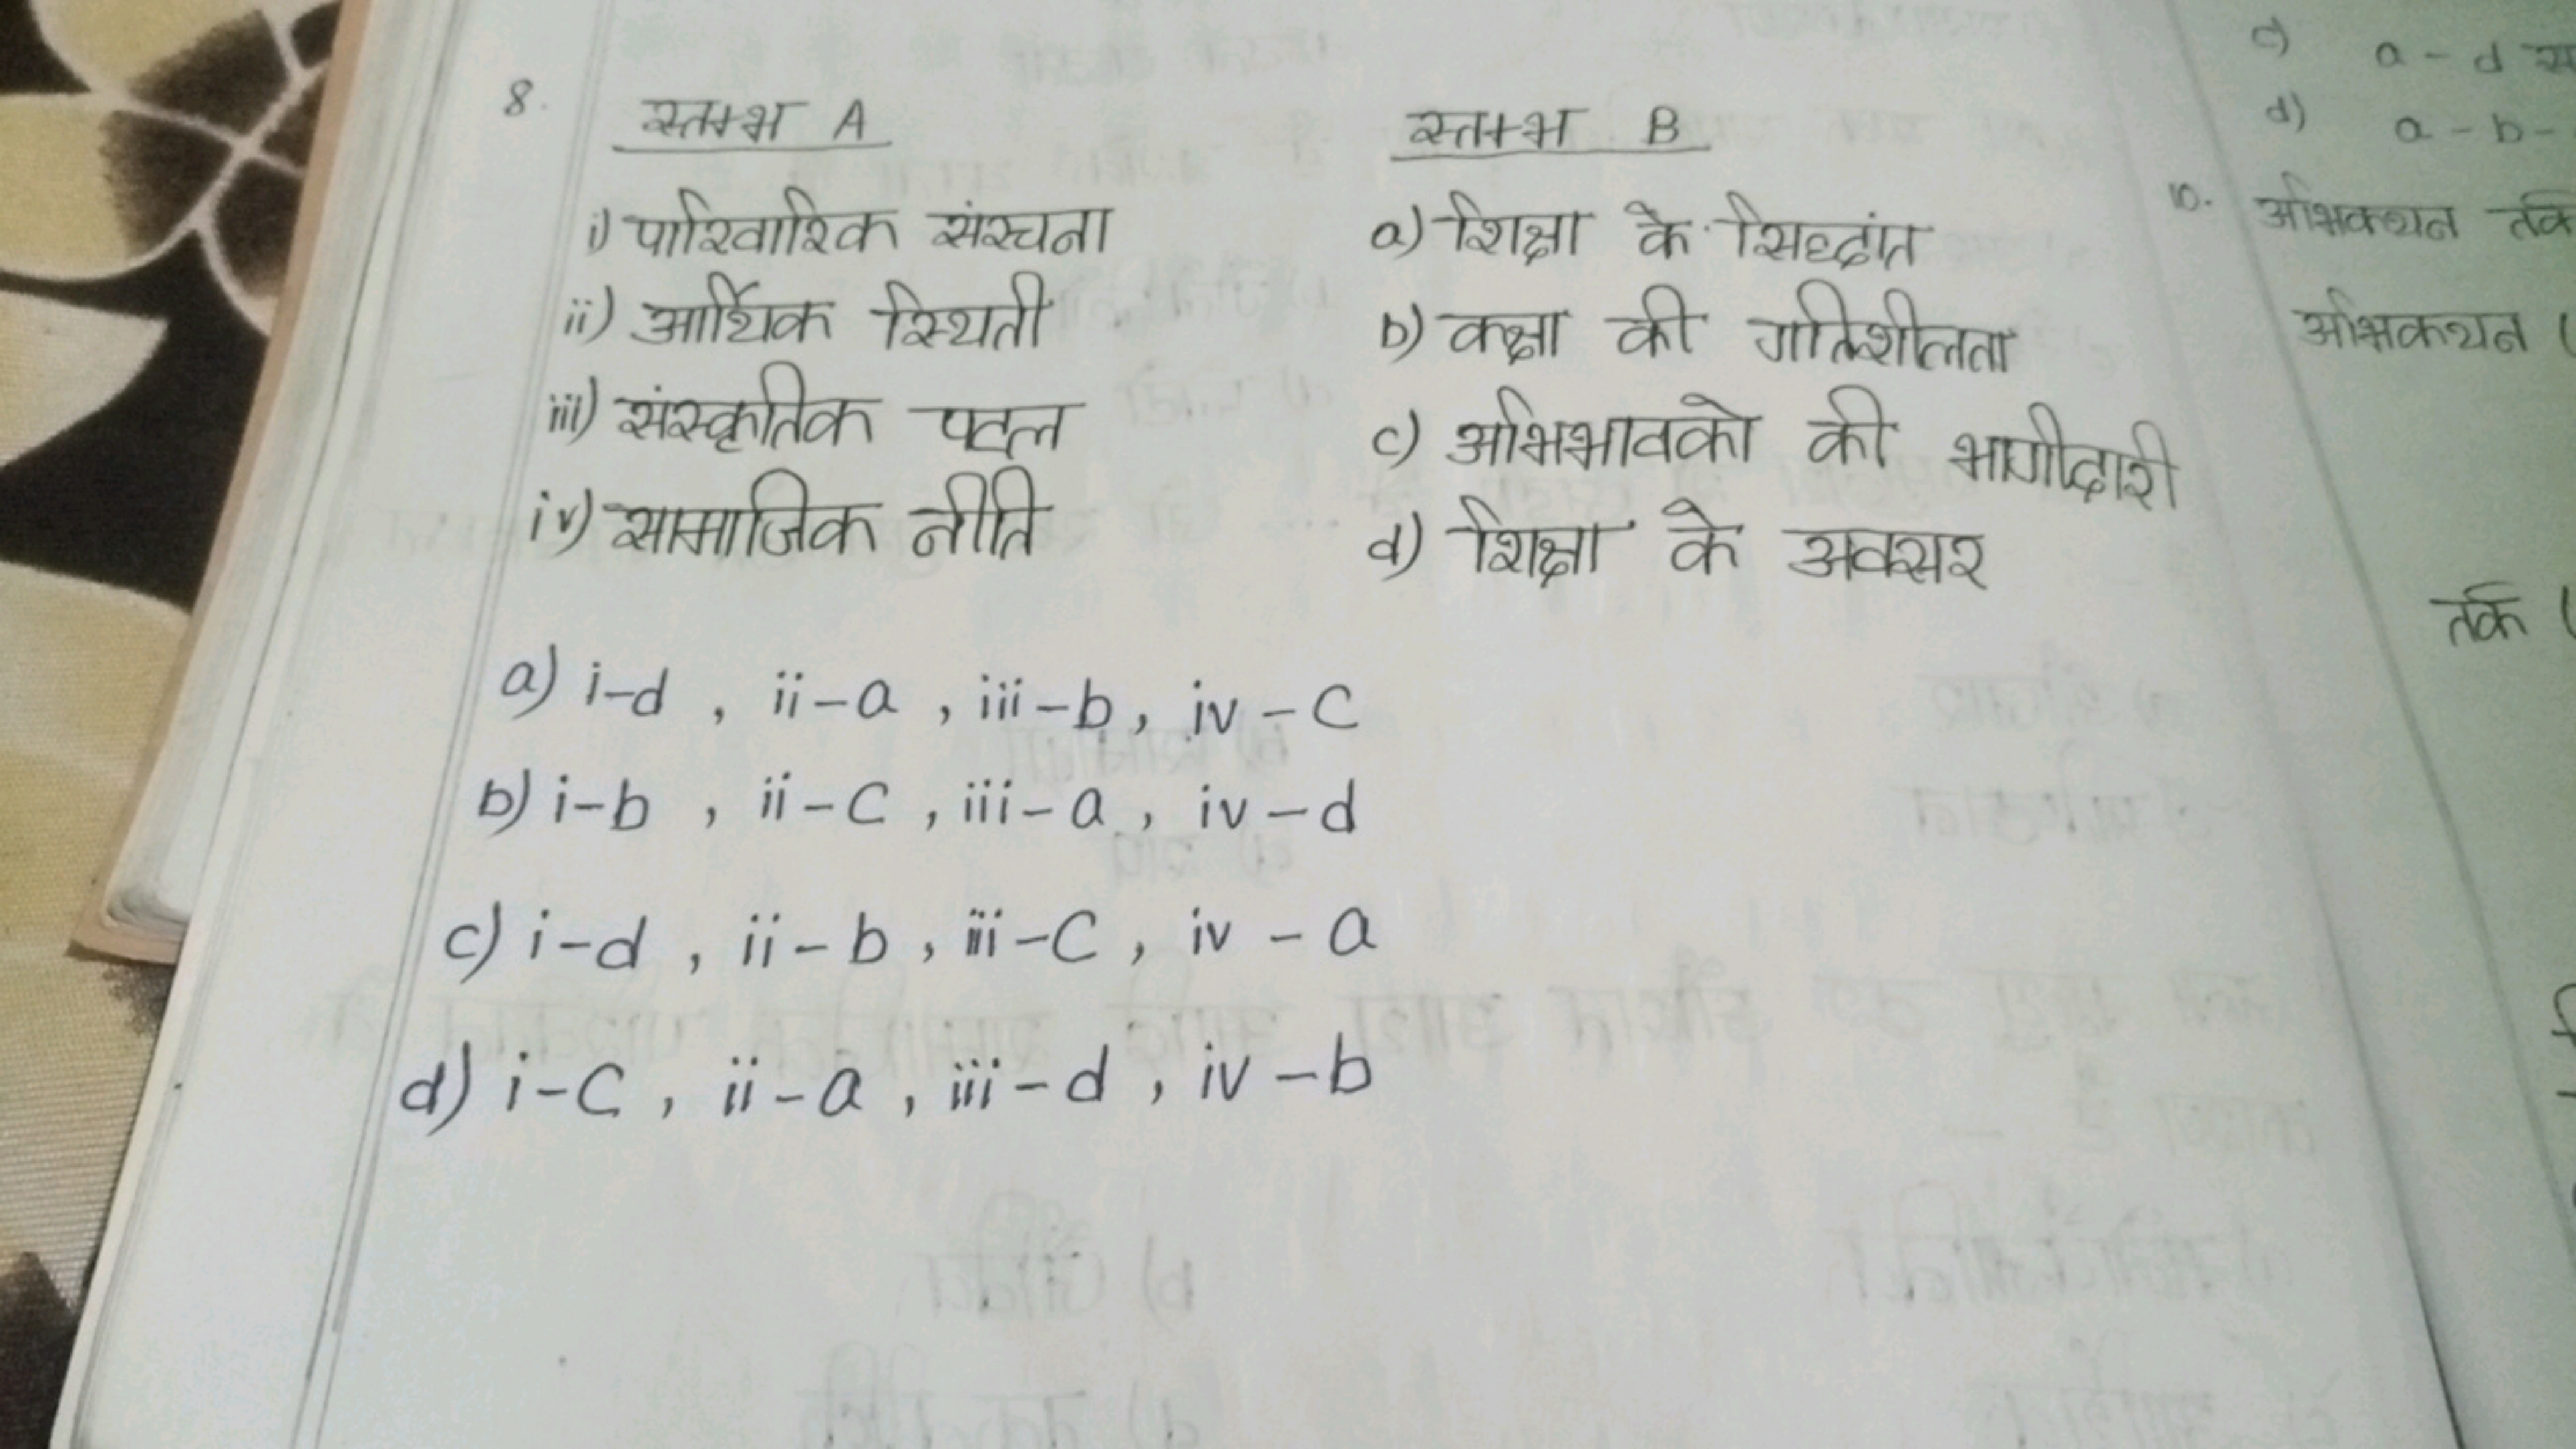 8. स्तम्भ A स्तम्भ B
i) पारिवारिक संरचना a) शिक्षा के सिद्दांत
ii) आर्थिक स्थिती b) कक्षा की गतिशीलता
iii) संस्कृतिक पटल c) अभिभावको की भागीदारी
iv) सामाजिक नीति d) शिक्षा के अवसर
a) i-d , ii-a , iii-b, iv-c
b) i-b , ii-c , iii-a , iv-d
c) i-d , ii-b , iii-c , iv-a
d) i-c , ii-a , iii-d , iv-b
c) a-d
d) a-b-
10. अभिकथन
अभिकथन (
तर्क (